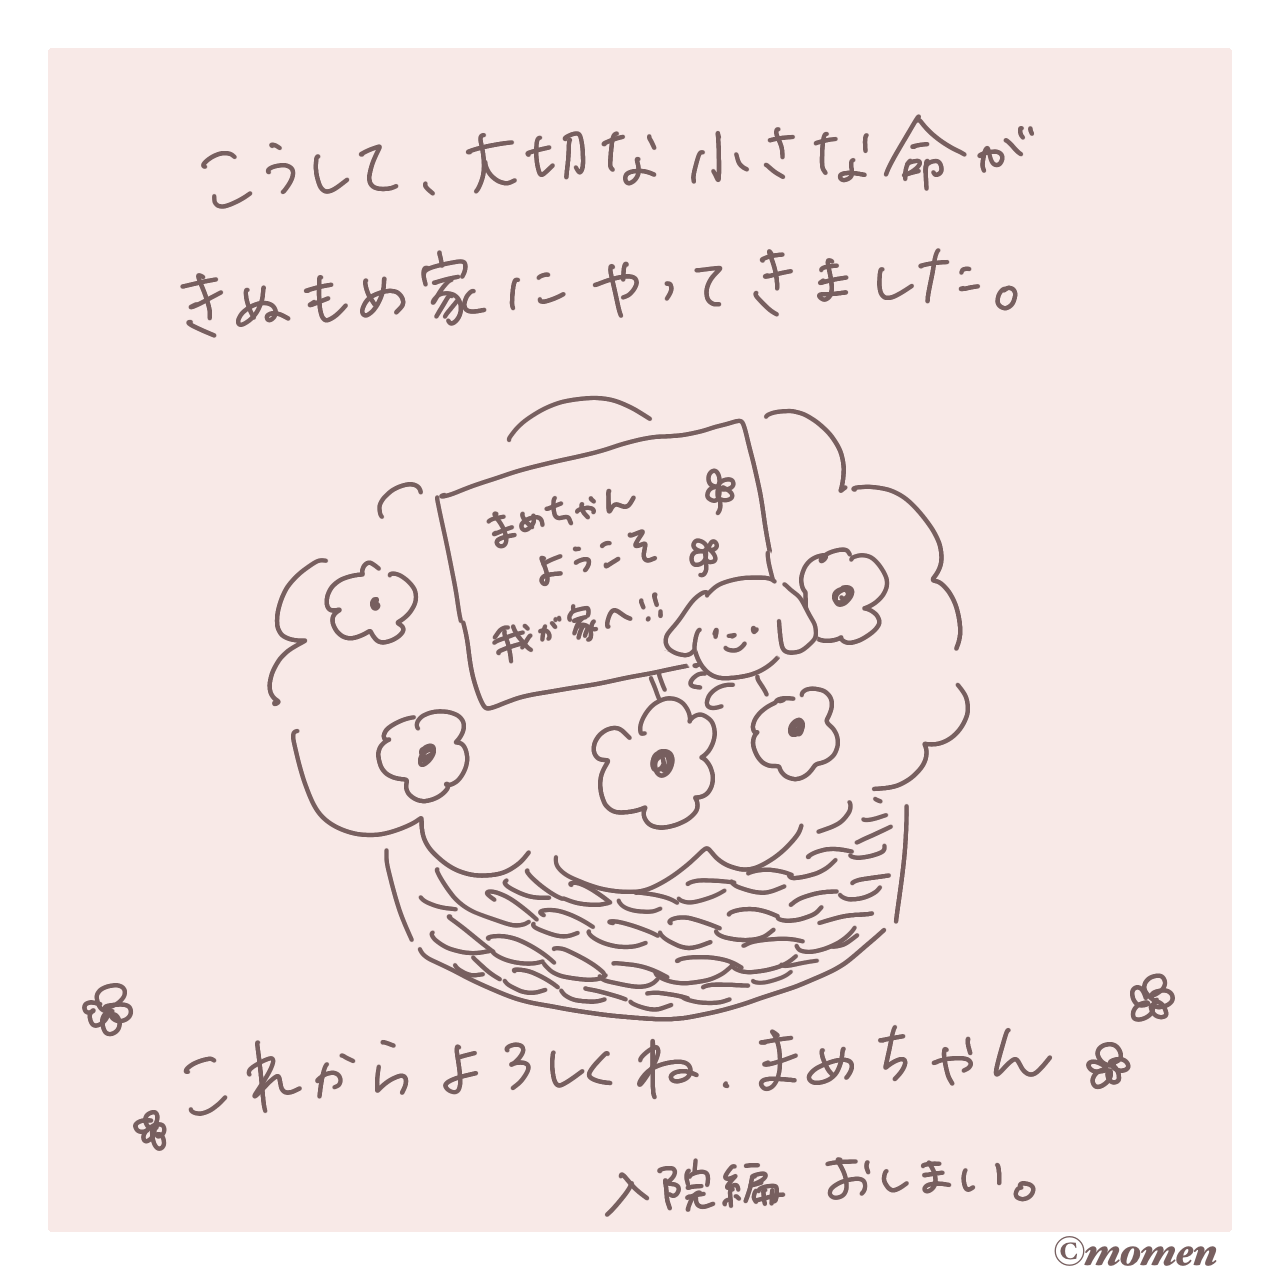 こうして、大切な小さな命が
きぬもめ家にやってきました。
まめちゃん
ようこそ
我が家へ!!
これからよろしくね.まめちゃん
入院編 おしまい。
©momen